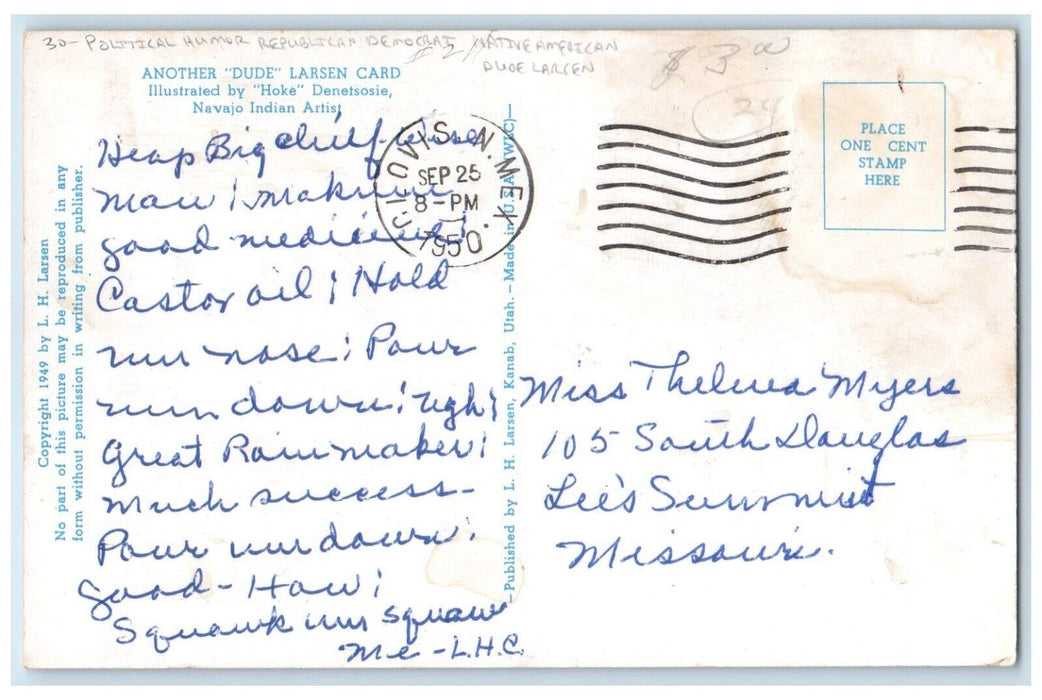 30- POLITICAL HUMOR REPUBLICAN DEMOCRAT NATIVE AMERICAN
DUDE LARSEN
$ 3.00
24
ANOTHER "DUDE" LARSEN CARD
Illustrated by "Hoke" Denetsosie,
Navajo Indian Artist
Copyright 1949 by L. H. Larsen
No part of this picture may be reproduced in any
form without permission in writing from publisher.
Heap Big chief wise
man! makum
good medicine!
Castor oil! Hold
um nose! Pour
um down! ugh!
Great Rainmaker!
Much success-
Pour um down!
Good - How!
Squawk um squaw
Me - L.H.C.
CLOVIS, N. MEX.
SEP 25
8 - PM
1950
-Published by L. H. Larsen, Kanab, Utah.-Made in U.S.A. (WLC)-
PLACE
ONE CENT
STAMP
HERE
Miss Thelma Myers
105 South Douglas
Lee's Summit
Missouri.